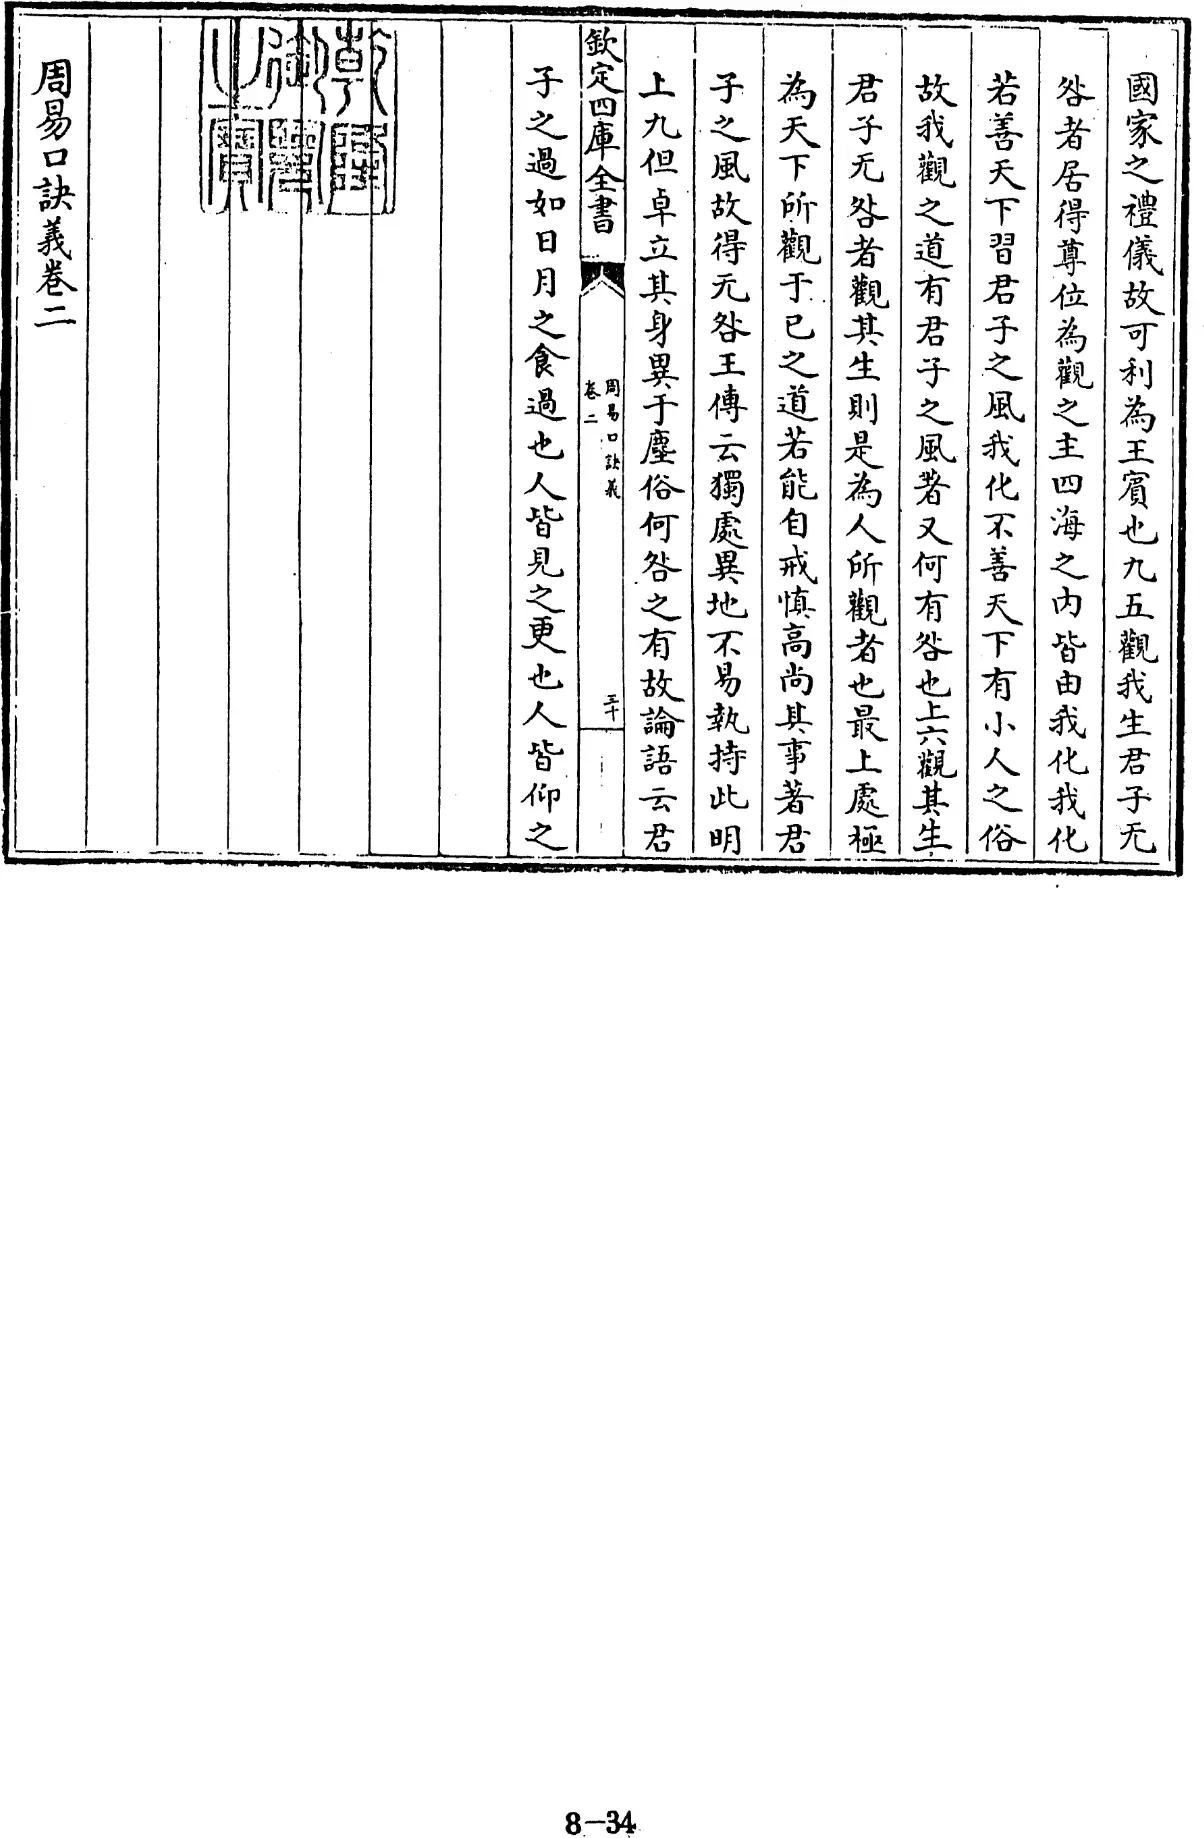 國家之禮儀故可利為王賓也九五觀我生君子无
咎者居得尊位為觀之主四海之內皆由我化我化
若善天下習君子之風我化不善天下有小人之俗
故我觀之道有君子之風著又何有咎也上六觀其生
君子无咎者觀其生則是為人所觀者也最上處極
為天下所觀于已之道若能自戒慎高尚其事著君
子之風故得无咎王傳云獨處異地不易執持此明
上九但卓立其身異于塵俗何咎之有故論語云君
欽定四庫全書
周易口訣義
卷二
三十
子之過如日月之食過也人皆見之更也人皆仰之
乾隆
御覽
之寶
周易口訣義卷二
8-34